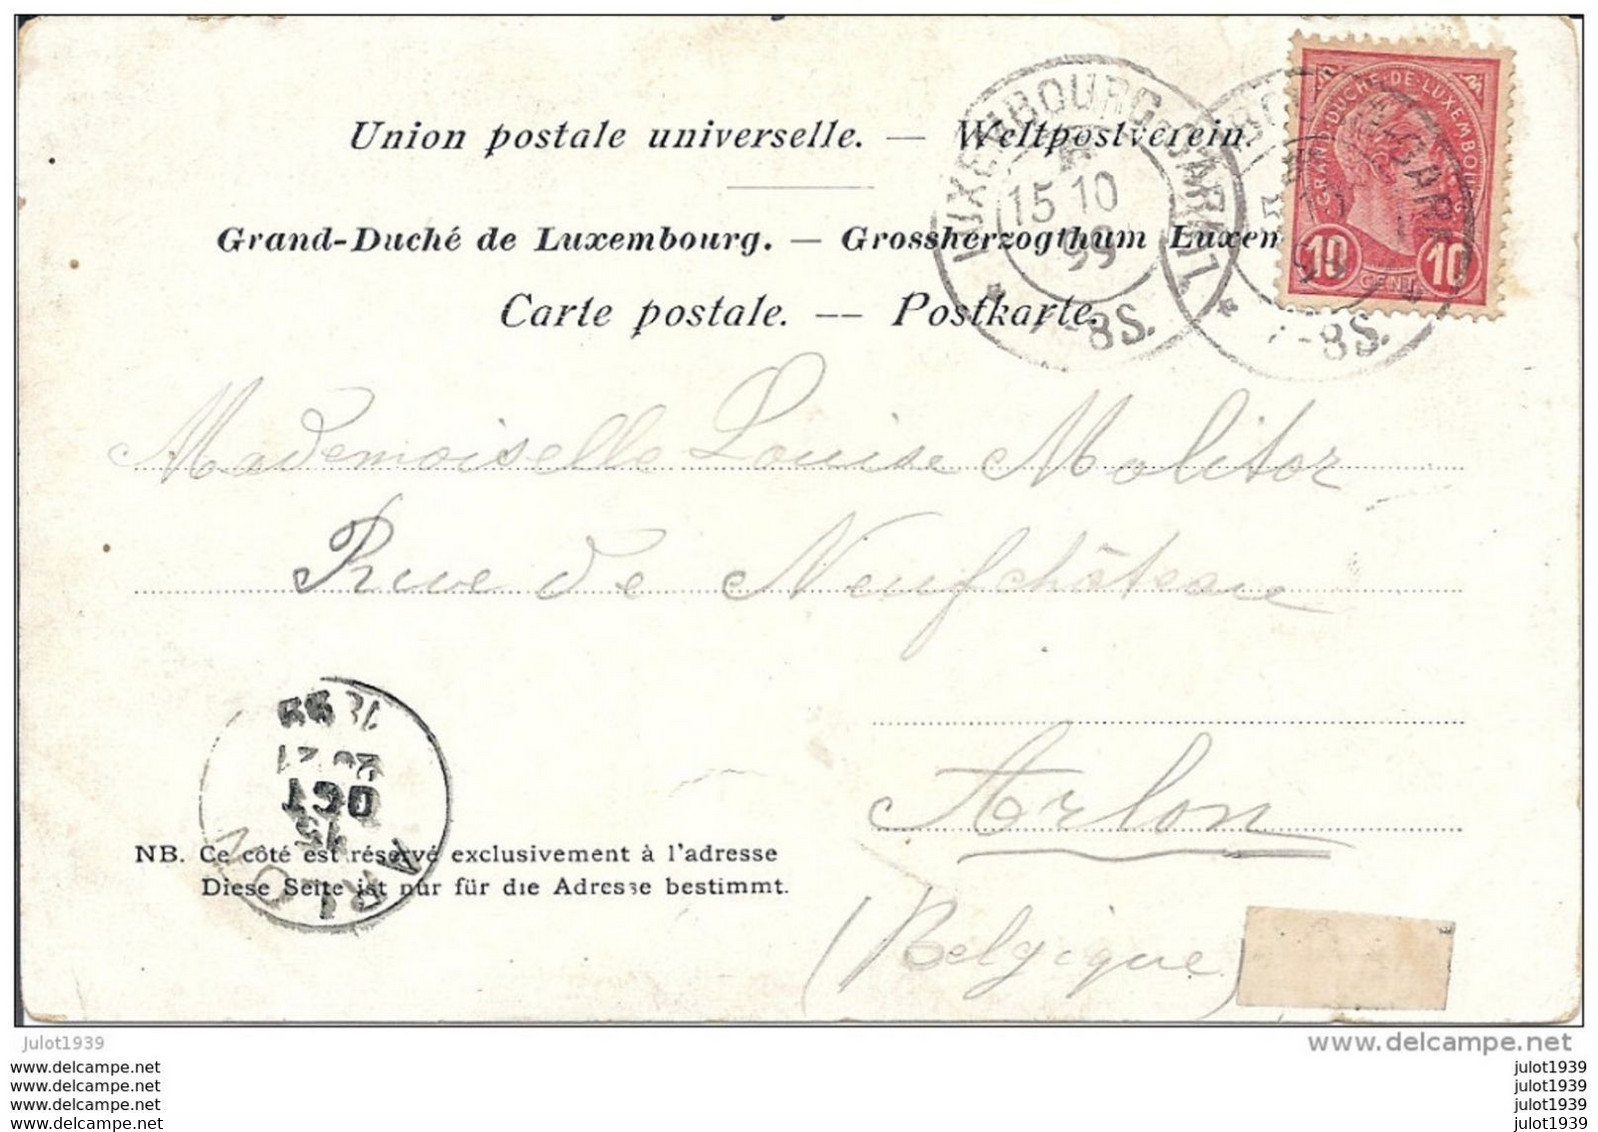 Union postale universelle. — Weltpostverein.
Grand-Duché de Luxembourg. — Grossherzogthum Luxem
Carte postale. — Postkarte.
LUXEMBOURG-GARE
15 10
99
7-8S.
GRAND DUCHÉ DE LUXEMBOURG
10 10
7-8S.
Mademoiselle Louise Molitor
Rue de Neufchâteau
Arlon
(Belgique)
ARLON
15
OCT
20 21
1899
NB. Ce côté est réservé exclusivement à l'adresse
Diese Seite ist nur für die Adresse bestimmt.
www.delcampe.net
julot1939
www.delcampe.net
www.delcampe.net
www.delcampe.net
www.delcampe.net
julot1939
julot1939
julot1939
julot1939